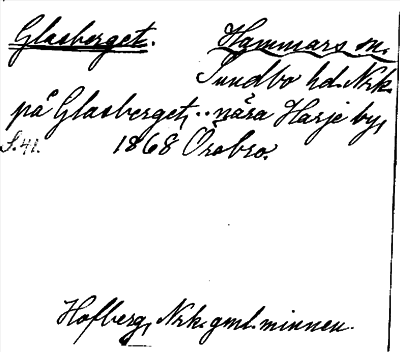 Glasberget. Hammars sn.
Sundbo hd. Nrk.
på Glasberget, .. nära Harje by,
S. 41. 1868 Örebro.
Hofberg, Nrk. gml. minnen.